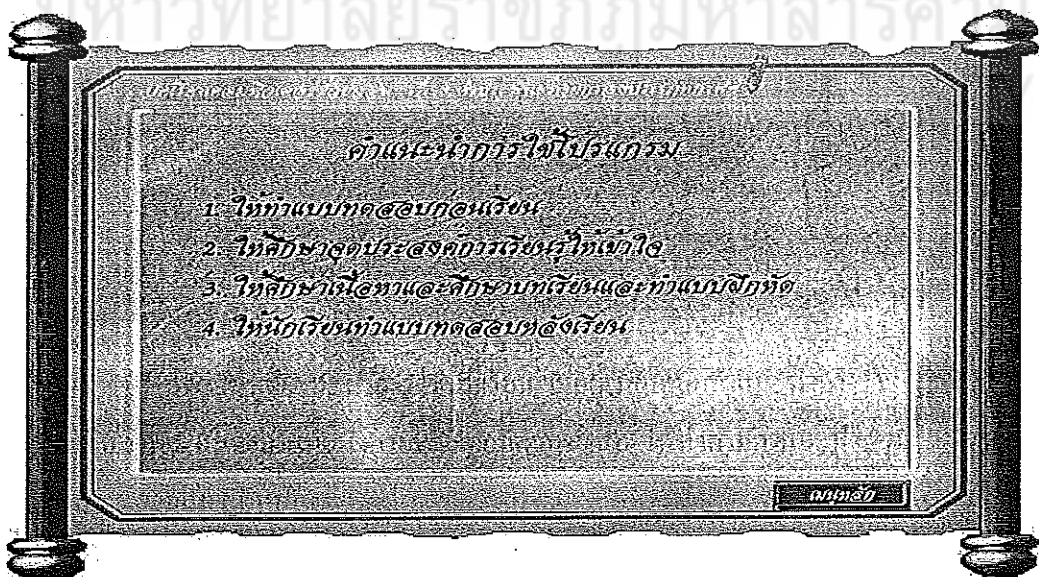 มหาวิทยาลัยราชภัฏมหาสารคาม
คำแนะนำการใช้โปรแกรม
1. ให้ทำแบบทดสอบก่อนเรียน
2. ให้ศึกษาจุดประสงค์การเรียนรู้ให้เข้าใจ
3. ให้ศึกษาเนื้อหาและศึกษาบทเรียนและทำแบบฝึกหัด
4. ให้นักเรียนทำแบบทดสอบหลังเรียน
เมนูหลัก